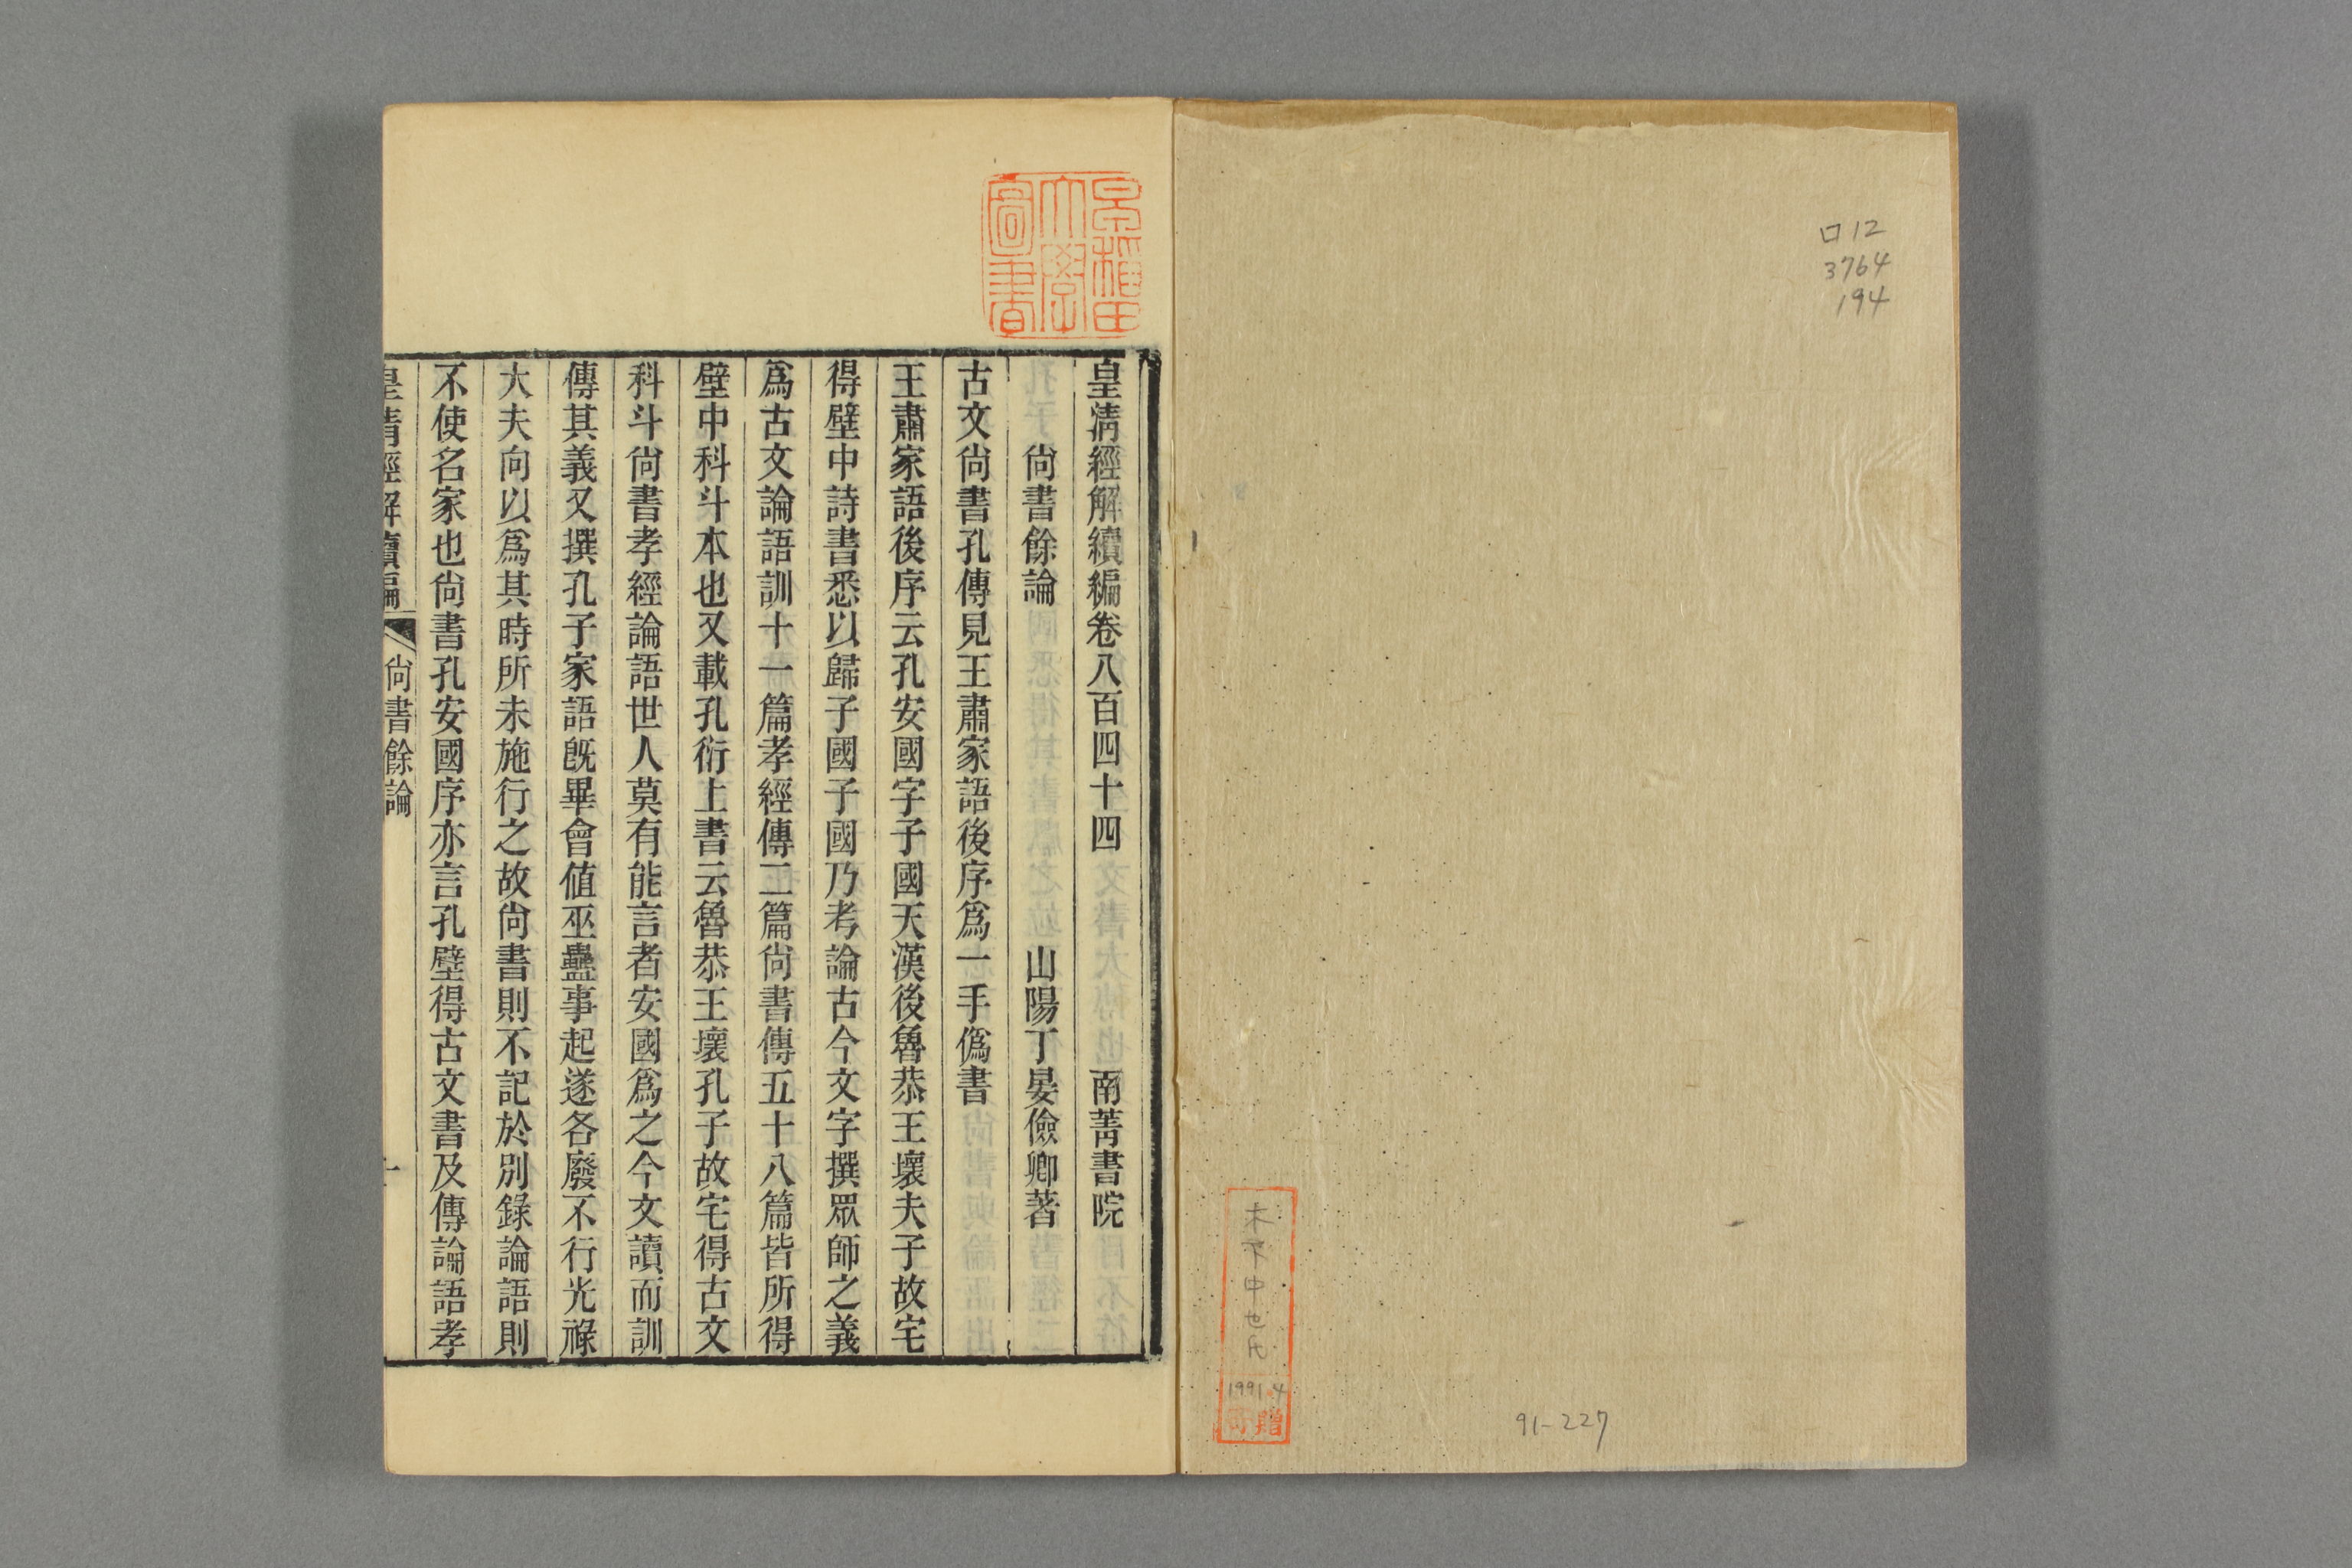 口12
3764
194
91-227
1991.4
贈
早稲田
大學
圖書
皇清經解續編卷八百四十四 南菁書院
尙書餘論 山陽丁晏儉卿著
古文尙書孔傳見王肅家語後序爲一手僞書
王肅家語後序云孔安國字子國天漢後魯恭王壞夫子故宅
得壁中詩書悉以歸子國子國乃考論古今文字撰眾師之義
爲古文論語訓十一篇孝經傳二篇尙書傳五十八篇皆所得
壁中科斗本也又載孔衍上書云魯恭王壞孔子故宅得古文
科斗尙書孝經論語世人莫有能言者安國爲之今文讀而訓
傳其義又撰孔子家語旣畢會値巫蠱事起遂各廢不行光祿
大夫向以爲其時所未施行之故尙書則不記於別錄論語則
不使名家也尙書孔安國序亦言孔壁得古文書及傳論語孝
皇清經解續編 尙書餘論